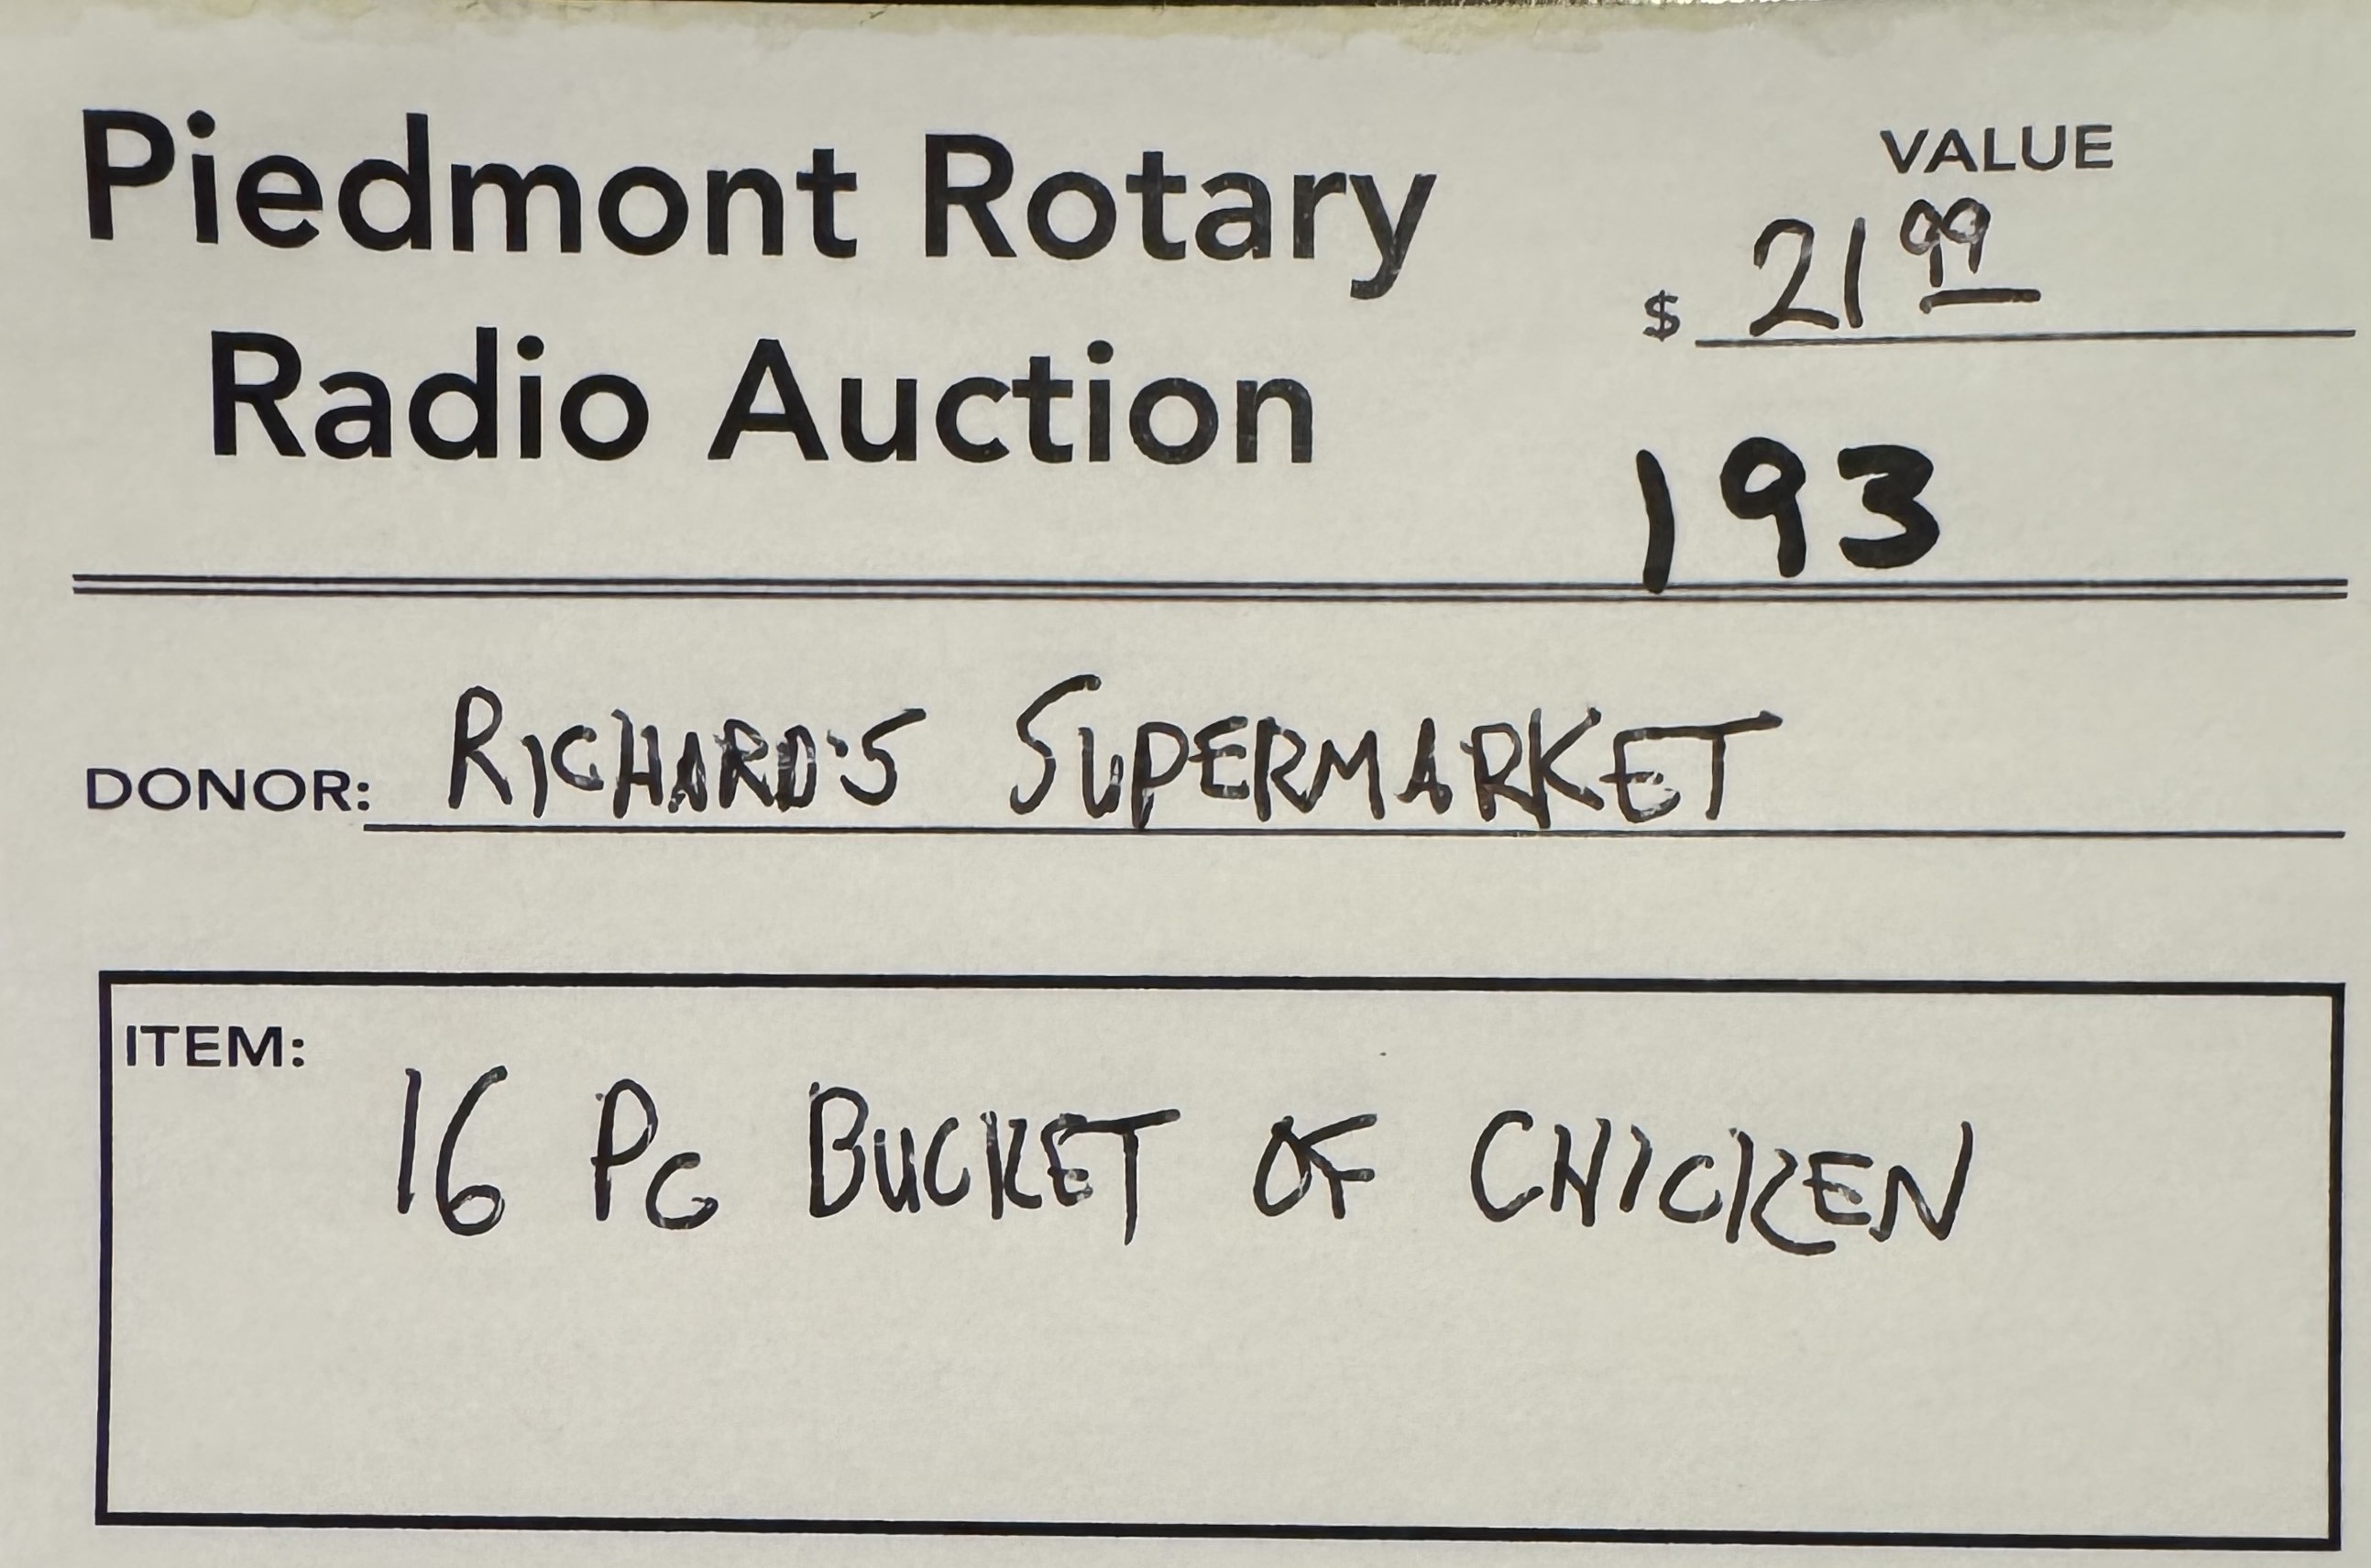 Piedmont Rotary
Radio Auction
VALUE
$ 21 99
193
DONOR: RICHARD'S SUPERMARKET
ITEM:
16 PC BUCKET OF CHICKEN